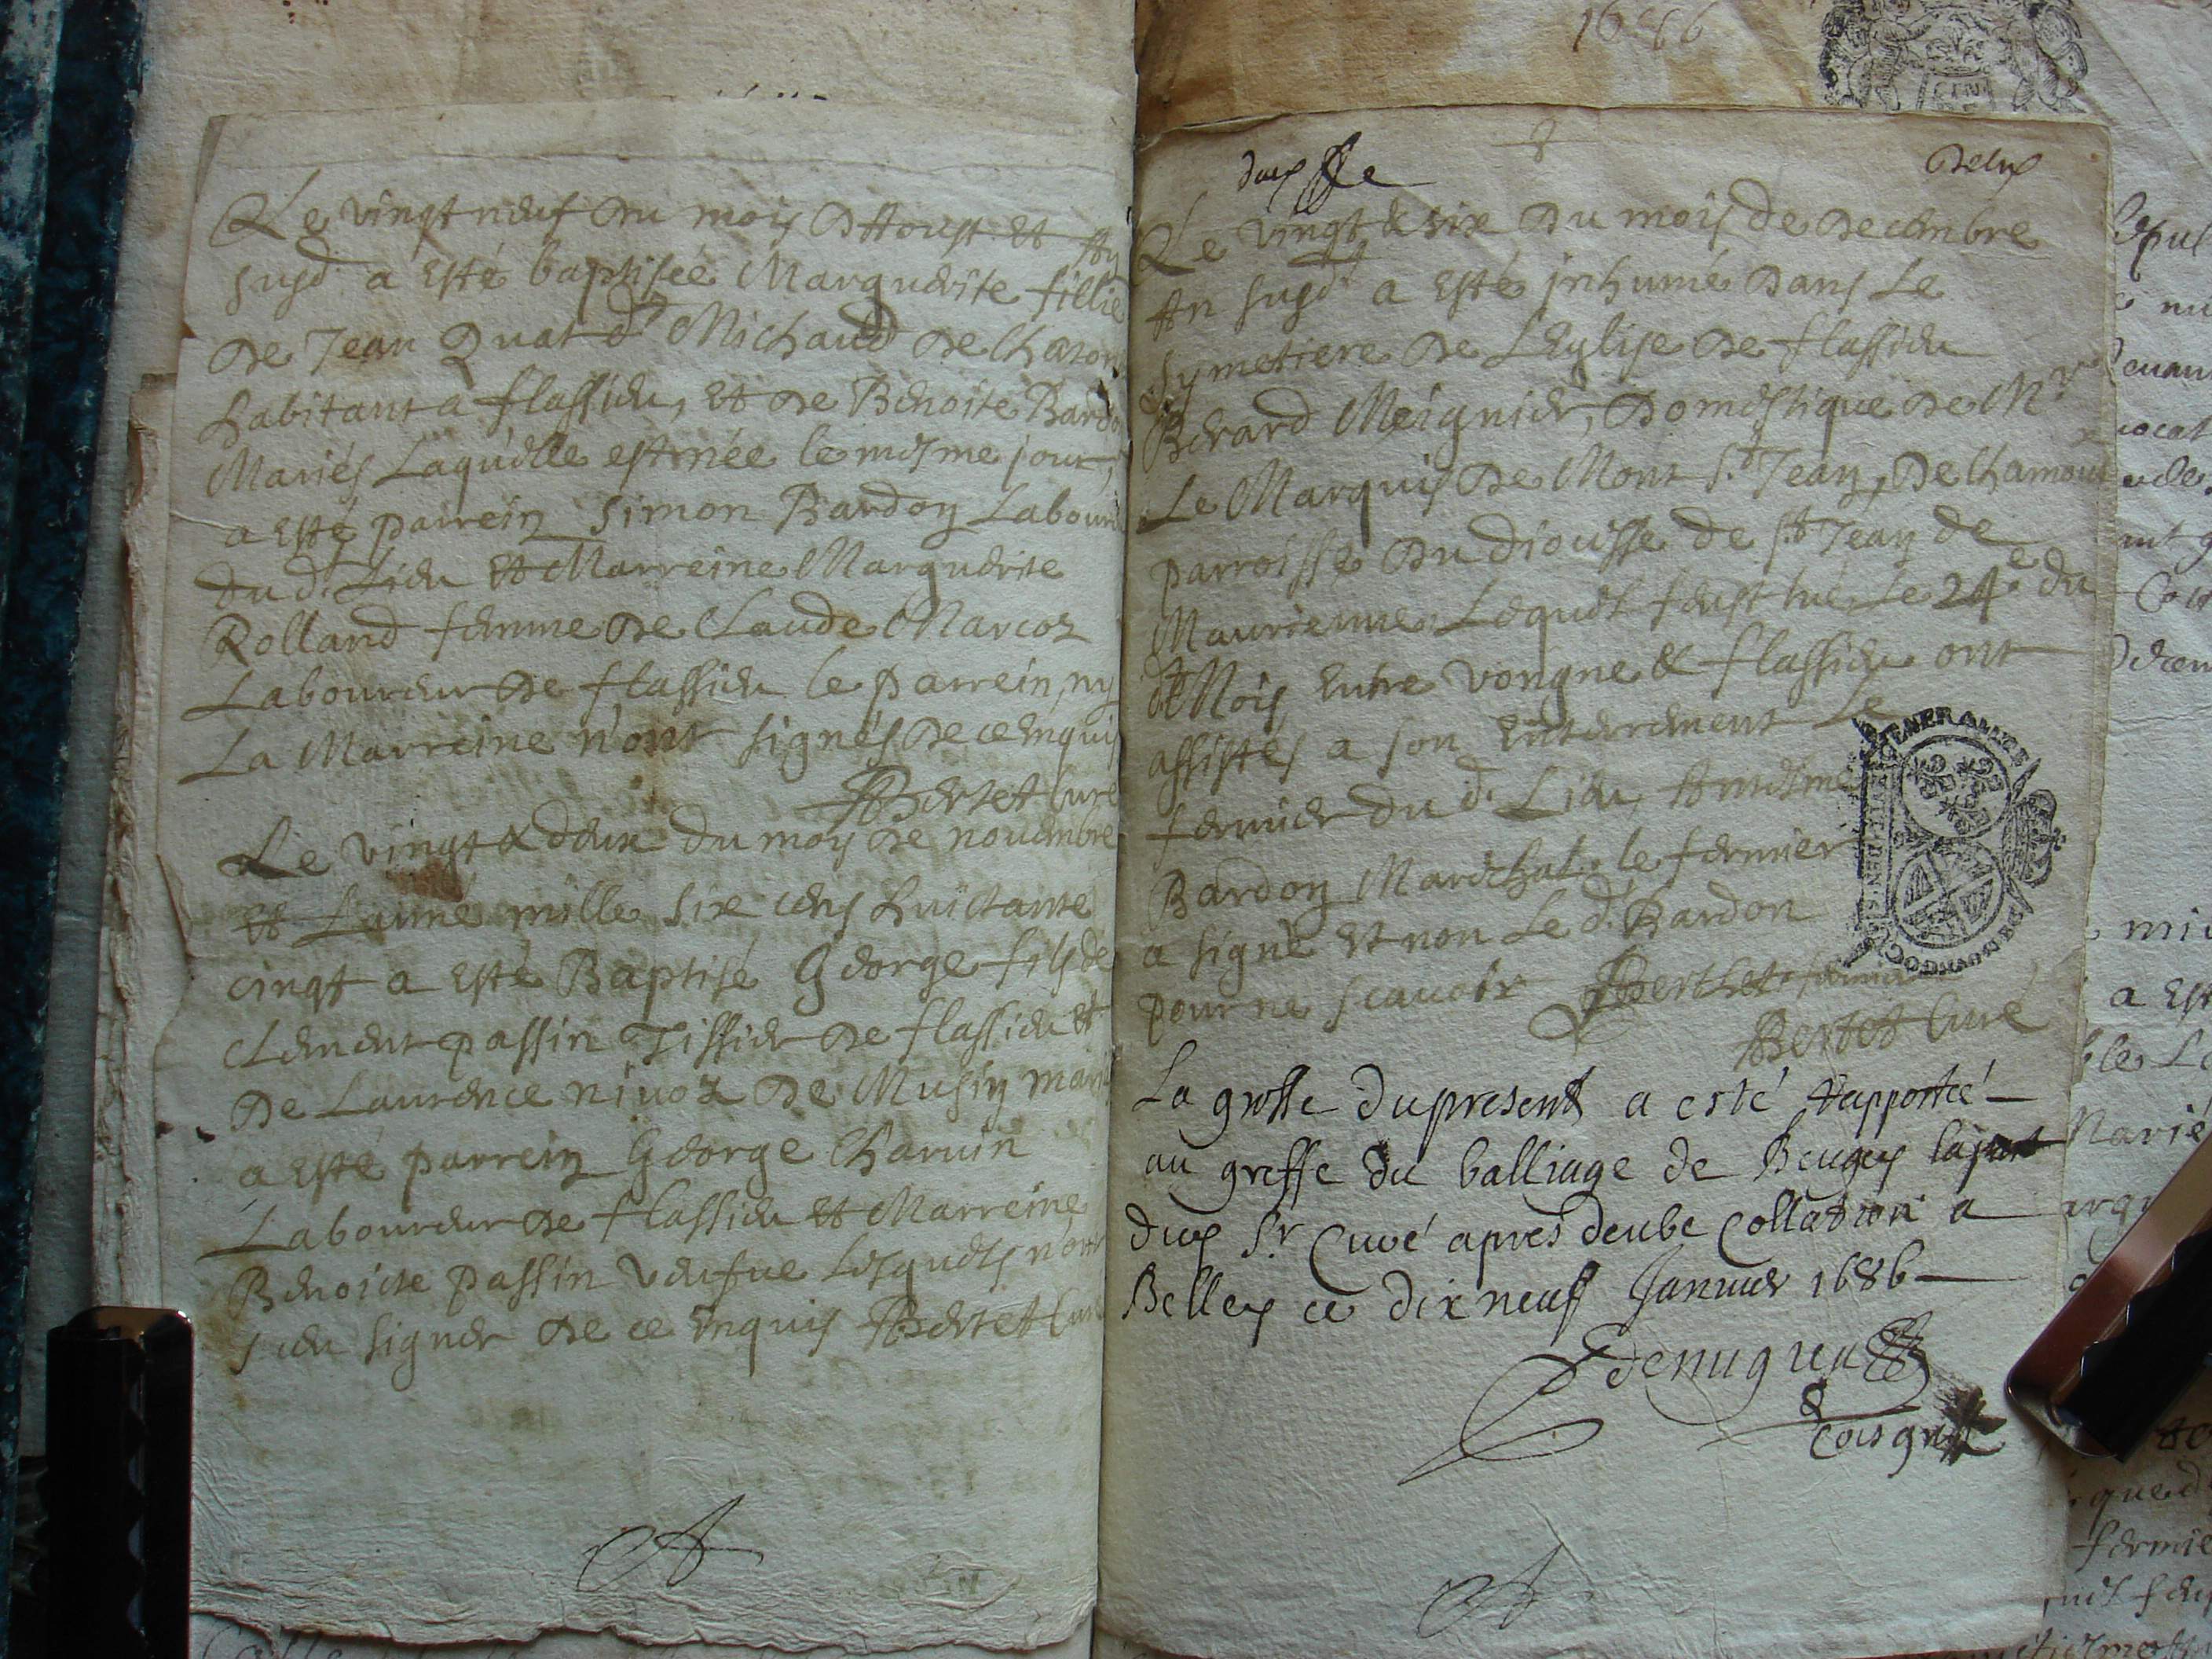 Le vingt neuf du mois d'Aoust et An
susd. a esté baptisée Marguerite fillie
de Jean Quat dt Michaud de Chason
habitant a flassieu, et de Benoite Bardon
Mariés Laquelle est née le mesme jour,
a esté parrein Simon Bardon Laboureur
du d. Lieu et Marreine Marguerite
Rolland femme de Claude Marcoz
Laboureur de flassieu le parrein, ny
La Marreine n'ont signés de ce enquis
Bertet Curé
Le vingt & deux du moys de novembre
et L'anné mille six cens huictante
cinqt a esté Baptisé George fils de
Clement passin Tissier de flassieu et
de Laurence nivoz de Musin mariés
a esté parrein George Charvin
Laboureur de flassieu et Marreine
Benoicte passin veufue Lesquels n'ont
sceu signer de ce enquis Bertet Curé
1686
CIN
deux
Le vingt & six du mois de decembre
An susd. a esté inhumé dans Le
symetiere de L'Eglise de flassieu
Berard Meignier, domestique de Mr
Le Marquis de Mont St Jean, de Chamoux
parroisse du diocisse de St Jean de
Maurienne Lequel feust tué Le 24e du
dt Mois entre vongne & flassieu ont
assistés a son enterrement Le
fermier du d. Lieu, Anthelme
Bardon Mareschal, le fermier
a signé et non Le d. Bardon
pour ne scauoir Berthet fermier
Bertet Curé
La grosse du present a esté Rapportée
au greffe du balliage de Beugey
dud Sr Curé apres deube Collation a
Belley ce dix neuf Januier 1686